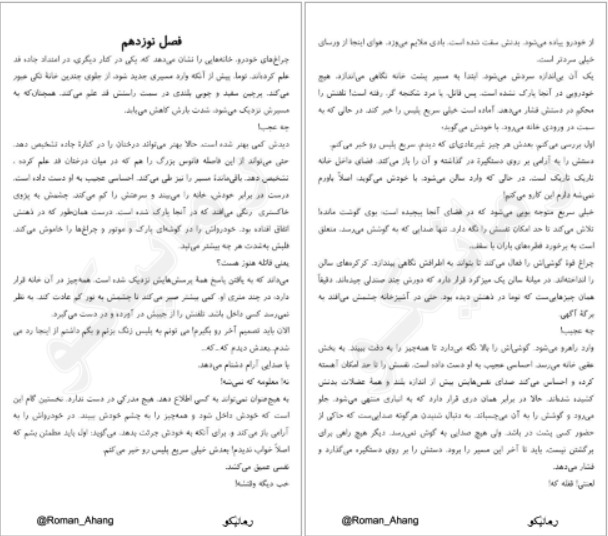 فصل نوزدهم
چراغ‌های خودرو، خانه‌هایی را نشان می‌دهد که یکی در کنار دیگری، در امتداد جاده قد
علم کرده‌اند. توما، پیش از آنکه وارد مسیری جدید شود، از جلوی چندین خانهٔ تکی عبور
می‌کند. پرچین سفید و چوبی بلندی در سمت راستش قد علم می‌کند. همچنان‌که به
مسیرش نزدیک می‌شود، شدت بارش کاهش می‌یابد.
چه عجب!
دیدش کمی بهتر شده است. حالا بهتر می‌تواند درختان را در کنارهٔ جاده تشخیص دهد.
حتی می‌تواند از این فاصله فانوس بزرگ را هم که در میان درختان قد علم کرده ،
تشخیص دهد. باقی‌ماندهٔ مسیر را نیز طی می‌کند. احساسی عجیب به او دست داده است.
درست در برابر خودش، خانه را می‌بیند و سرعتش را کم می‌کند. چشمش به پژوی
خاکستری رنگی می‌افتد که در آنجا پارک شده است. درست همان‌طور که در ذهنش
اتفاق افتاده بود. خودرواش را در گوشه‌ای پارک و موتور و چراغ‌ها را خاموش می‌کند.
قلبش به‌شدت هر چه بیشتر می‌تپد.
یعنی قاتله هنوز هست؟
می‌داند که به یافتن پاسخ همهٔ پرسش‌هایش نزدیک شده است. همه‌چیز در آن خانه قرار
دارد، در چند متری او. کمی بیشتر صبر می‌کند تا چشمش به نور کم عادت کند. به نظر
نمی‌رسد کسی داخل باشد. تلفنش را از جیبش در آورده و در دست می‌گیرد.
الان باید تصمیم آخر رو بگیرم! می تونم به پلیس زنگ بزنم و بگم داشتم از اینجا رد می
شدم..بعدش دیدم که...که...
با صدایی آرام دشنام می‌دهد.
نه! معلومه که نمی‌شه!
به هیچ‌عنوان نمی‌تواند به کسی اطلاع دهد. هیچ مدرکی در دست ندارد. نخستین گام این
است که خودش داخل شود و همه‌چیز را به چشم خودش ببیند. در خودرواش را به
آرامی باز می‌کند و برای آنکه به خودش جرئت بدهد، می‌گوید: اول باید مطمئن بشم که
اصلاً خواب ندیدم! بعدش خیلی سریع پلیس رو خبر می‌کنم.
نفسی عمیق می‌کشد.
خب دیگه وقتشه!
@Roman_Ahang
رمانیکو
از خودرو پیاده می‌شود. بدنش سفت شده است. بادی ملایم می‌وزد. هوای اینجا از ورسای
خیلی سردتر است.
یک آن بی‌اندازه سردش می‌شود. ابتدا به مسیر پشت خانه نگاهی می‌اندازد. هیچ
خودرویی در آنجا پارک نشده است. پس قاتل، یا مرد شکنجه گر، رفته است! تلفنش را
محکم در دستش فشار می‌دهد. آماده است خیلی سریع پلیس را خبر کند. در حالی که به
سمت در ورودی خانه می‌رود، با خودش می‌گوید:
اول بررسی می‌کنم، بعدش هر چیز غیرعادی‌ای که دیدم، سریع پلیس رو خبر می‌کنم.
دستش را به آرامی بر روی دستگیرهٔ در گذاشته و آن را باز می‌کند. فضای داخل خانه
تاریک تاریک است. در حالی که وارد سالن می‌شود، با خودش می‌گوید: اصلاً باورم
نمی‌شه دارم این کارو می‌کنم!
خیلی سریع متوجه بویی می‌شود که در فضای آنجا پیچیده است، بوی گوشت مانده!
تلاش می‌کند تا حد امکان نفسش را نگه دارد. تنها صدایی که به گوشش می‌رسد، متعلق
است به برخورد قطره‌های باران با سقف.
چراغ قوهٔ گوشی‌اش را فعال می‌کند تا بتواند به اطرافش نگاهی بیندازد. کرکره‌های سالن
را انداخته‌اند. در میانهٔ سالن یک میزگرد قرار دارد که دورش چند صندلی چیده‌اند. دقیقاً
همان چیزهایی‌ست که توما در ذهنش دیده بود. حتی در آشپزخانه چشمش می‌افتد به
برگهٔ آگهی.
چه عجیب!
وارد راهرو می‌شود. گوشی‌اش را بالا نگه می‌دارد تا همه‌چیز را به دقت ببیند. به بخش
عقبی خانه می‌رسد. احساسی عجیب به او دست داده است. نفسش را تا حد امکان آهسته
کرده و احساس می‌کند صدای نفس‌هایش بیش از اندازه بلند و همهٔ عضلات بدنش
کشیده شده‌اند. حالا در برابر همان دری قرار دارد که به انباری منتهی می‌شود. جلو
می‌رود و گوشش را به آن می‌چسباند. به دنبال شنیدن هرگونه صدایی‌ست که حاکی از
حضور کسی پشت در باشد. ولی هیچ صدایی به گوش نمی‌رسد. دیگر هیچ راهی برای
برگشتن نیست. باید تا آخر این مسیر را برود. دستش را بر روی دستگیره می‌گذارد و
فشار می‌دهد.
لعنتی! قفله که!
@Roman_Ahang
رمانیکو